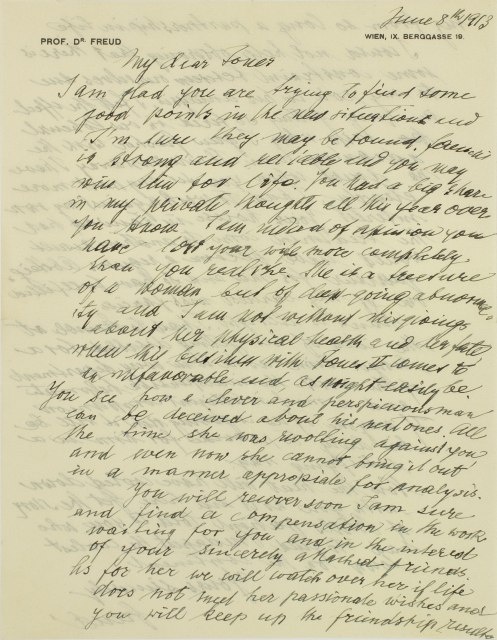 June 8th 1913
PROF. DR. FREUD
WIEN, IX. BERGGASSE 19.
My dear Jones
I am glad you are trying to find some
good points in the new situation and
I'm sure they may be found. Ferenczi
is strong and reliable and you may
win him for life. You had a big share
in my private thoughts all this year over
you know. I am indeed of opinion you
have lost your wife more completely,
than you realize. She is a treasure
of a woman but of deep going abnormi-
ty and I am not without misgivings
about her physical health and her fate
when this business with Jones II comes to
an unfavorable end as might easily be
You see how a clever and perspicuous man
can be deceived about his next ones. All
the time she was revolting against you
and even now she cannot bring it out
in a manner appropiate for analysis.
You will recover soon I am sure
and find a compensation in the work
waiting for you and in the interest
of your sincerely attached friends
As for her we will watch over her if life
does not meet her passionate wishes and
you will keep up the friendship